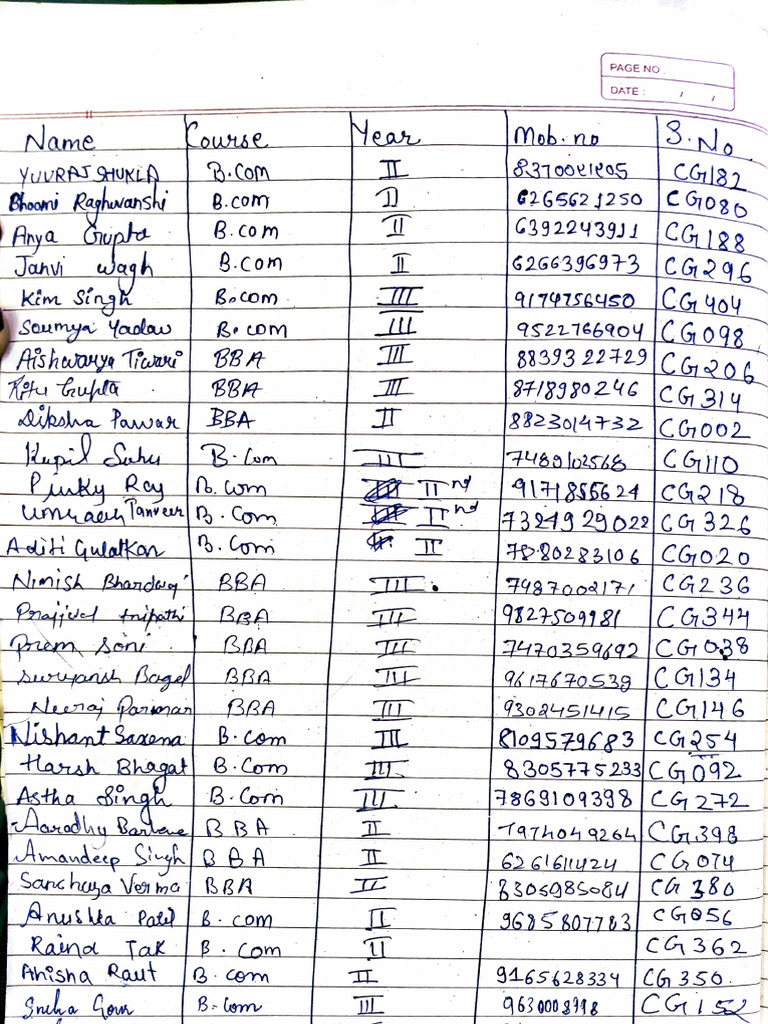 PAGE NO.
DATE : / /
Name Course Year Mob. no S. No
YUVRAJ SHUKLA B.COM II CG182
Bhoomi Raghuvanshi B.com II 6265621250 CG080
Anya Gupta B.com II 6392243911 CG188
Janvi Wagh B.com II 6266396973 CG296
Kim Singh B.com III 9174756450 CG404
Soumya Yadav B.com III 9522766904 CG098
Aishwarya Tiwari BBA III 8839322729 CG206
Ritu Gupta BBA III 8718980246 CG314
Diksha Pawar BBA II 8823014732 CG002
Kapil Sahu B.Com III 7489102568 CG110
Pinky Roy B.com II nd 9171855624 CG218
Tanveer B.Com II nd 7324929022 CG326
Aditi Gulatkar B.Com II 7880283106 CG020
Nimish Bhardwaj BBA III. 7487002171 CG236
tripathi BBA III 9827509981 CG344
Prem Soni BBA III 7470359692 CG038
Suryansh Bagel BBA III 9617670539 CG134
Neeraj Parmar BBA III 9302451415 CG146
Nishant Saxena B.com III 8109579683 CG254
Harsh Bhagat B.Com III 8305775233 CG092
Astha Singh B.Com III 7869109398 CG272
BBA II CG398
Amandeep Singh BBA II 6261611424 CG074
Sanchaya Verma BBA II 8305985084 CG380
Anushka Patil B.com II 9685807783 CG056
Tak B.com II CG362
Anisha Raut B.com II 9165628334 CG350.
Sneha Gour B.Com III CG152